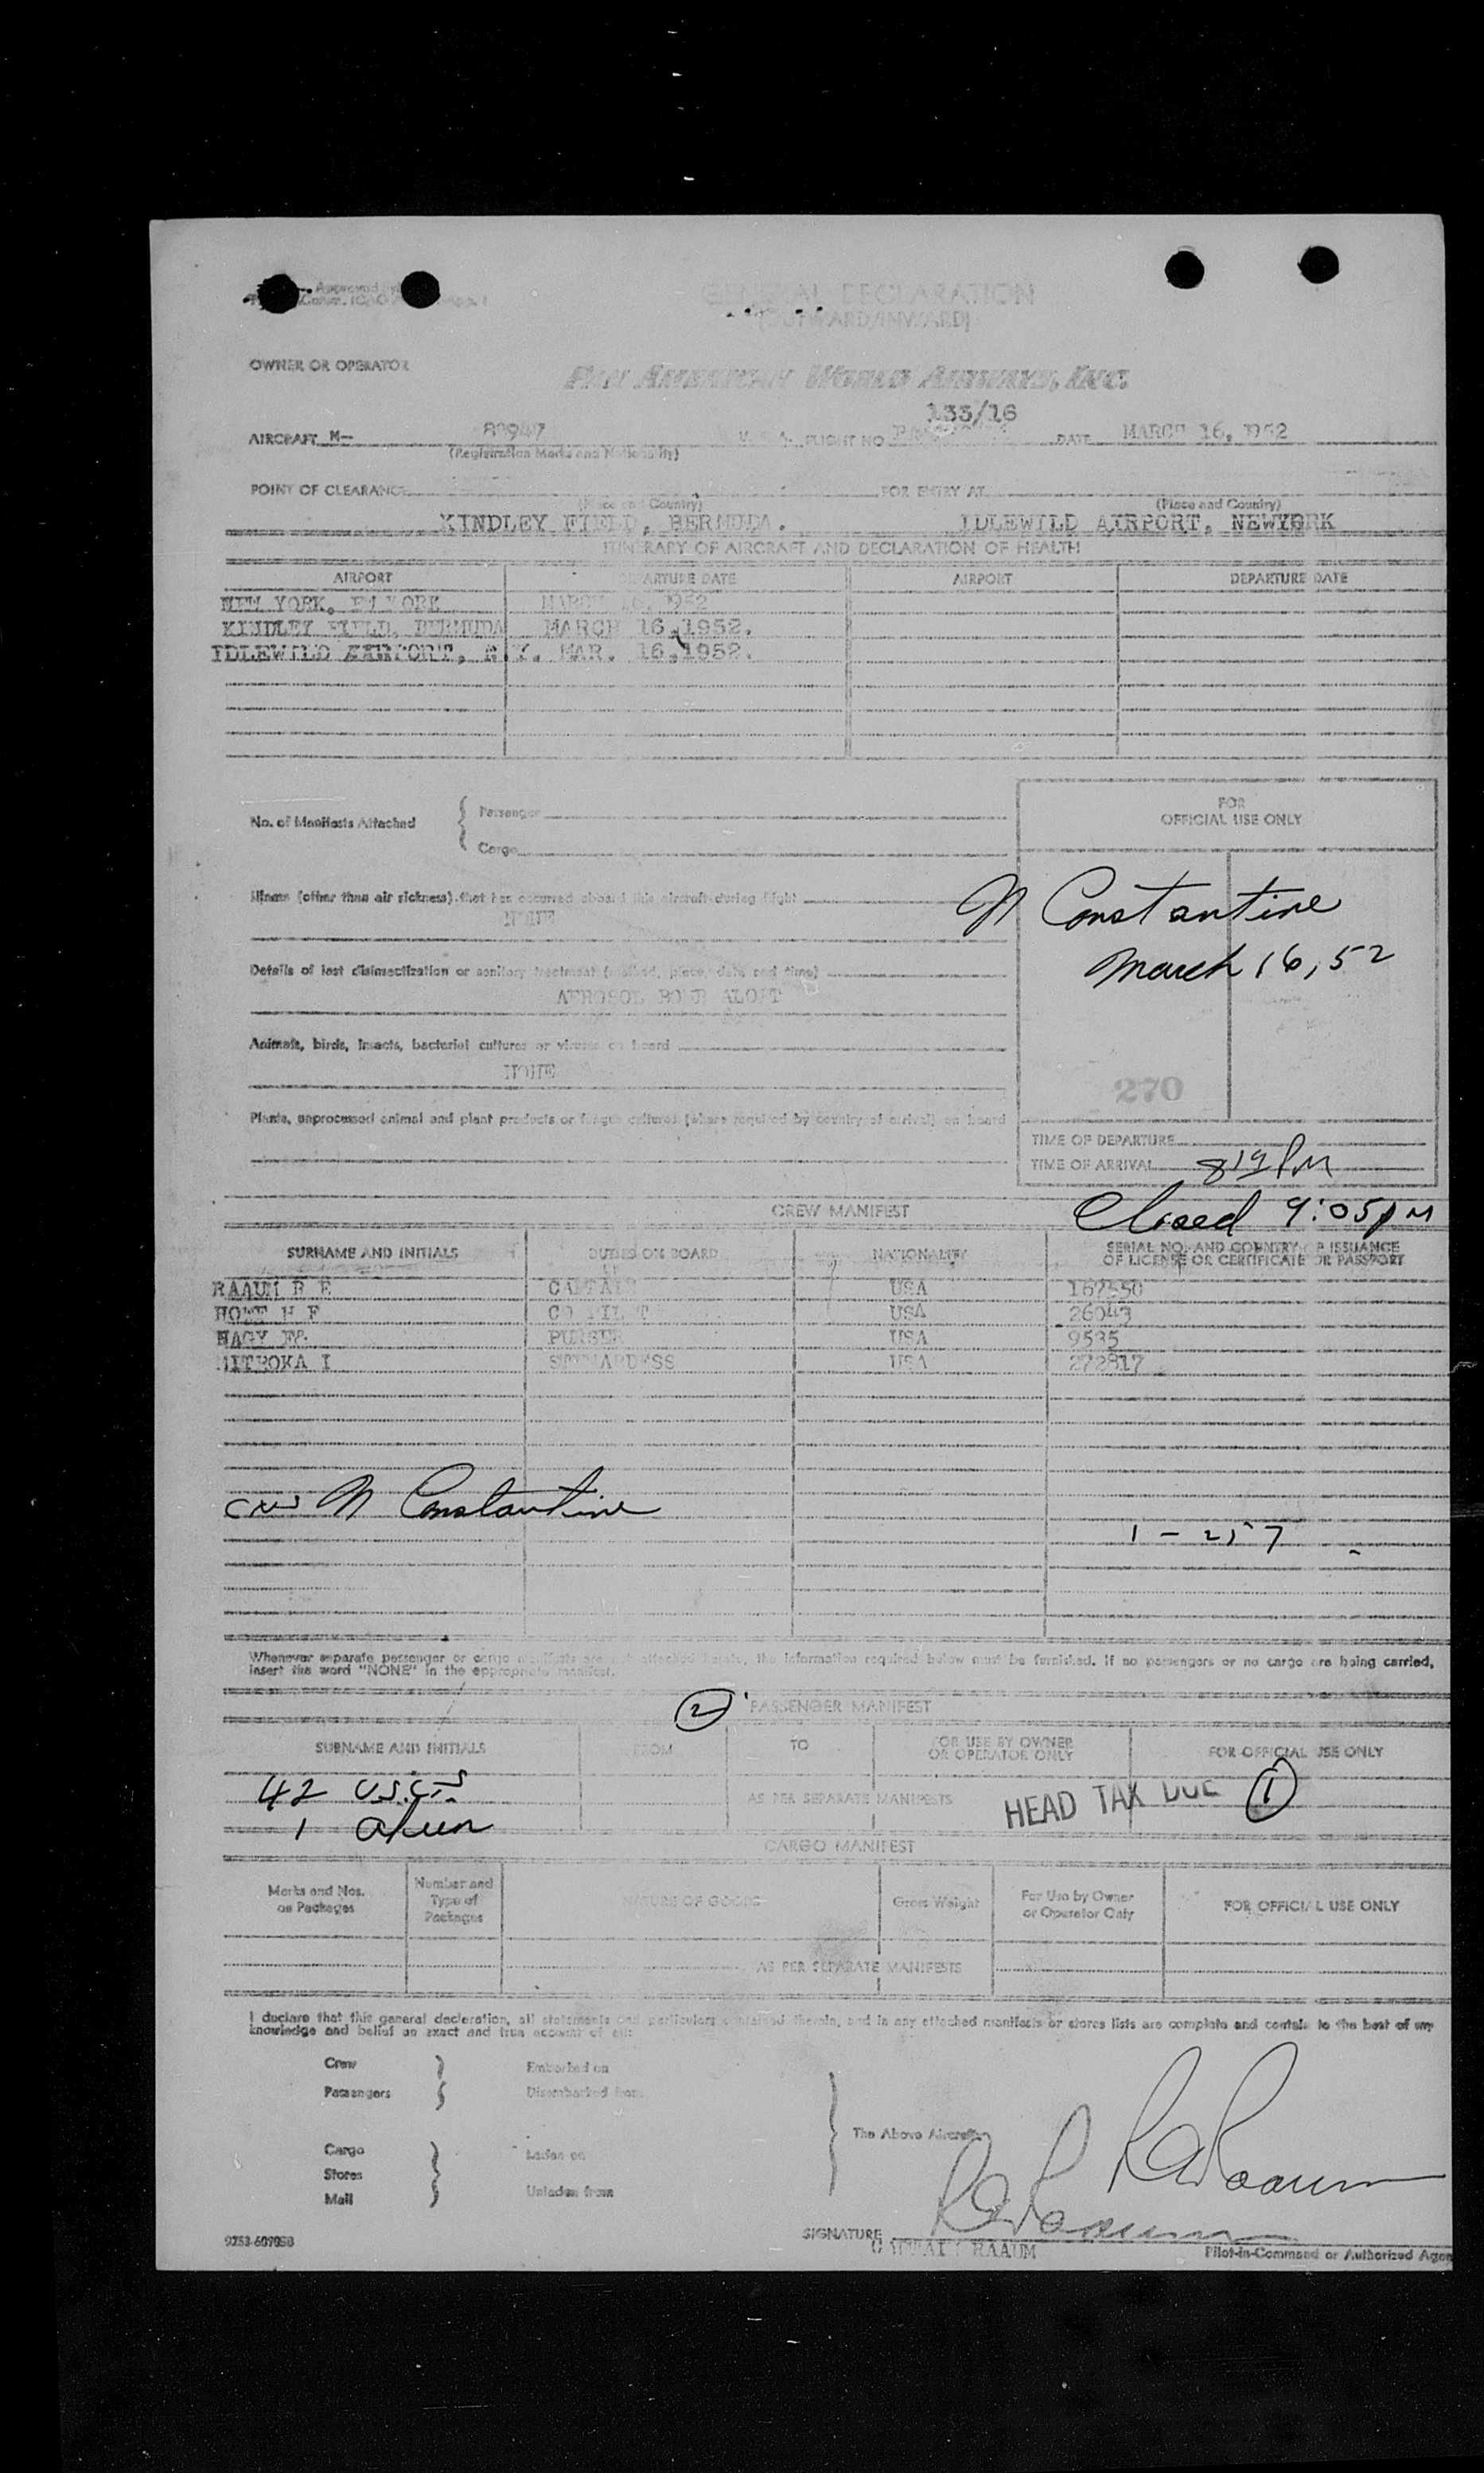 GENERAL DECLARATION
(OUTWARD/INWARD)
OWNER OR OPERATOR
PAN AMERICAN WORLD AIRWAYS, INC.
133/16
AIRCRAFT N- 88947 FLIGHT NO DATE MARCH 16, 1952
(Registration Marks and Nationality)
POINT OF CLEARANCE FOR ENTRY AT
(Place and Country) (Place and Country)
KINDLEY FIELD, BERMUDA. IDLEWILD AIRPORT, NEWYORK
ITINERARY OF AIRCRAFT AND DECLARATION OF HEALTH
AIRPORT DEPARTURE DATE AIRPORT DEPARTURE DATE
NEW YORK, MARCH 16, 1952
KINDLEY FIELD, BERMUDA MARCH 16, 1952.
IDLEWILD AIRPORT, N.Y. MAR. 16, 1952.
FOR
OFFICIAL USE ONLY
No. of Manifests Attached { Passenger
Cargo
N Constantine
March 16, 52
Illness (other than air sickness) that has occurred aboard this aircraft during flight
NONE
Details of last disinsectization or sanitary treatment (method, place, date and time)
AEROSOL BOMB ALOFT
Animals, birds, insects, bacterial cultures or viruses on board
NONE
270
Plants, unprocessed animal and plant products or fungus cultures (where required by country of arrival) on board
TIME OF DEPARTURE
TIME OF ARRIVAL 819 PM
Closed 9:05 PM
CREW MANIFEST
SURNAME AND INITIALS DUTIES ON BOARD NATIONALITY SERIAL NO. AND COUNTRY OF ISSUANCE
OF LICENSE OR CERTIFICATE OR PASSPORT
RAAUM R E CAPTAIN USA 167550
H F CO PILOT USA 26043
NAGY PURSER USA 9535
MITROKA I STEWARDESS USA 272817
N Constantine
1 - 257
Whenever separate passenger or cargo manifests are not attached hereto, the information required below must be furnished. If no passengers or no cargo are being carried,
insert the word "NONE" in the appropriate manifest.
2 PASSENGER MANIFEST
SURNAME AND INITIALS FROM TO FOR USE BY OWNER
OR OPERATOR ONLY FOR OFFICIAL USE ONLY
42 U.S.Cts
AS PER SEPARATE MANIFESTS HEAD TAX DUE 1
1 alien
CARGO MANIFEST
Marks and Nos.
on Packages Number and
Type of
Packages NATURE OF GOODS Gross Weight For Use by Owner
or Operator Only FOR OFFICIAL USE ONLY
AS PER SEPARATE MANIFESTS
I declare that this general declaration, all statements and particulars contained therein, and in any attached manifests or stores lists are complete and contain to the best of my
knowledge and belief an exact and true account of all:
Crew } Embarked on
Passengers } Disembarked from
The Above Aircraft
Cargo Laden on
Stores
Mail Unladen from
R E Raaum
R E Raaum
SIGNATURE
CAPTAIN RAAUM Pilot-in-Command or Authorized Agen